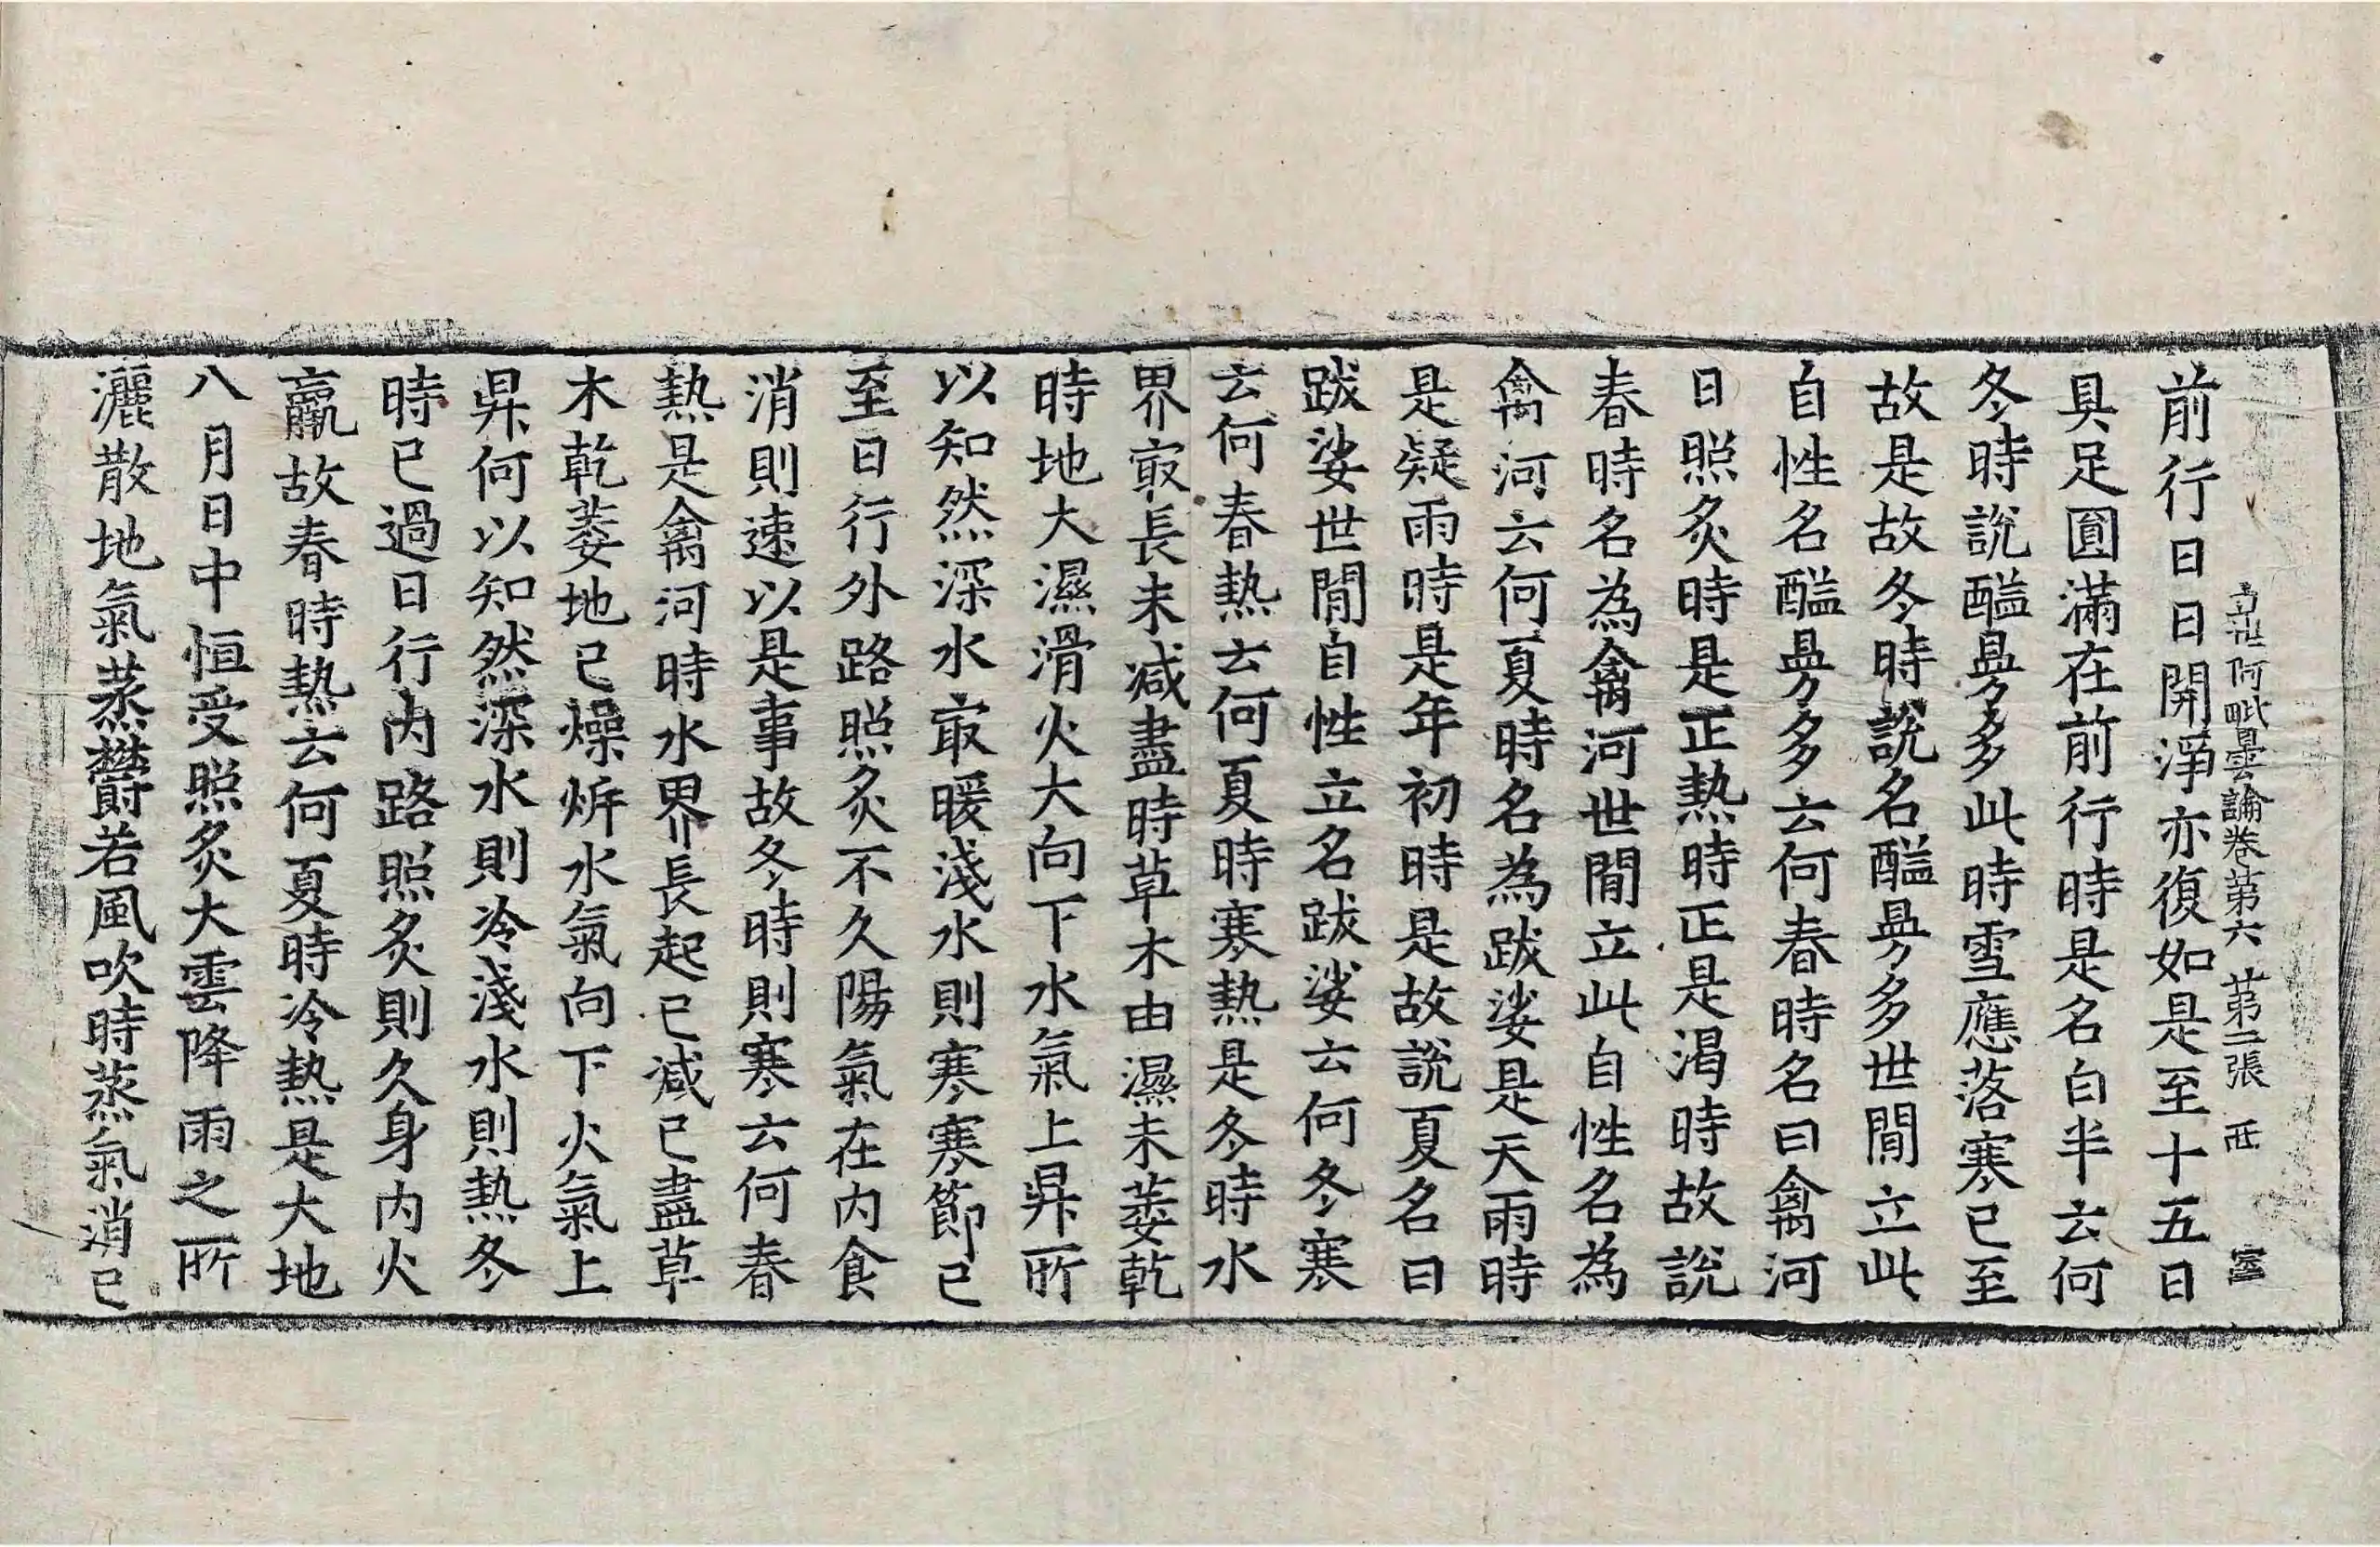 立世阿毗曇論卷第六 第二張 西
前行日日開淨亦復如是至十五日
具足圓滿在前行時是名白半云何
冬時說醯曼多此時雪應落寒已至
故是故冬時說名醯曼多世間立此
自性名醯曼多云何春時名曰禽河
日照炙時是正熱時正是渴時故說
春時名為禽河世間立此自性名為
禽河云何夏時名為跋娑是天雨時
是疑雨時是年初時是故說夏名曰
跋娑世間自性立名跋娑云何冬寒
云何春熱云何夏時寒熱是冬時水
界㝡長未減盡時草木由濕未萎乾
時地大濕滑火大向下水氣上昇所
以知然深水㝡暖淺水則寒寒節已
至日行外路照炙不久陽氣在內食
消則速以是事故冬時則寒云何春
熱是禽河時水界長起已減已盡草
木乾萎地已燥㸃水氣向下火氣上
昇何以知然深水則冷淺水則熱冬
時已過日行內路照炙則久身內火
羸故春時熱云何夏時冷熱是大地
八月日中恒受照炙大雲降雨之所
灑散地氣蒸欝若風吹時蒸氣消已